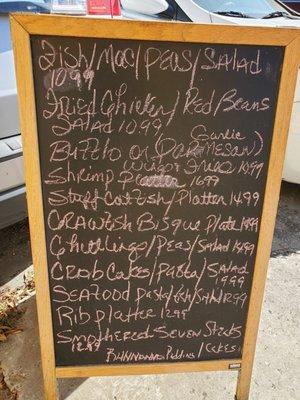 Fish/Mac/Peas/Salad
10.99
Fried Chicken/Red Beans
Salad 10.99
(Garlic
Bufflo or Parmesan)
Wings Fries 10.99
Shrimp 16.99
Stuff Catfish/Platter 14.99
CRAWfish Bisque Plate 14.99
Chittlings/Peas/Salad 14.99
Crab Cakes/Pasta/Salad
19.99
Seafood Pasta/fish/Salad 12.99
Rib platter 12.99
Smothered Seven Steaks
12.99
BANNANA Pudding/CAKES